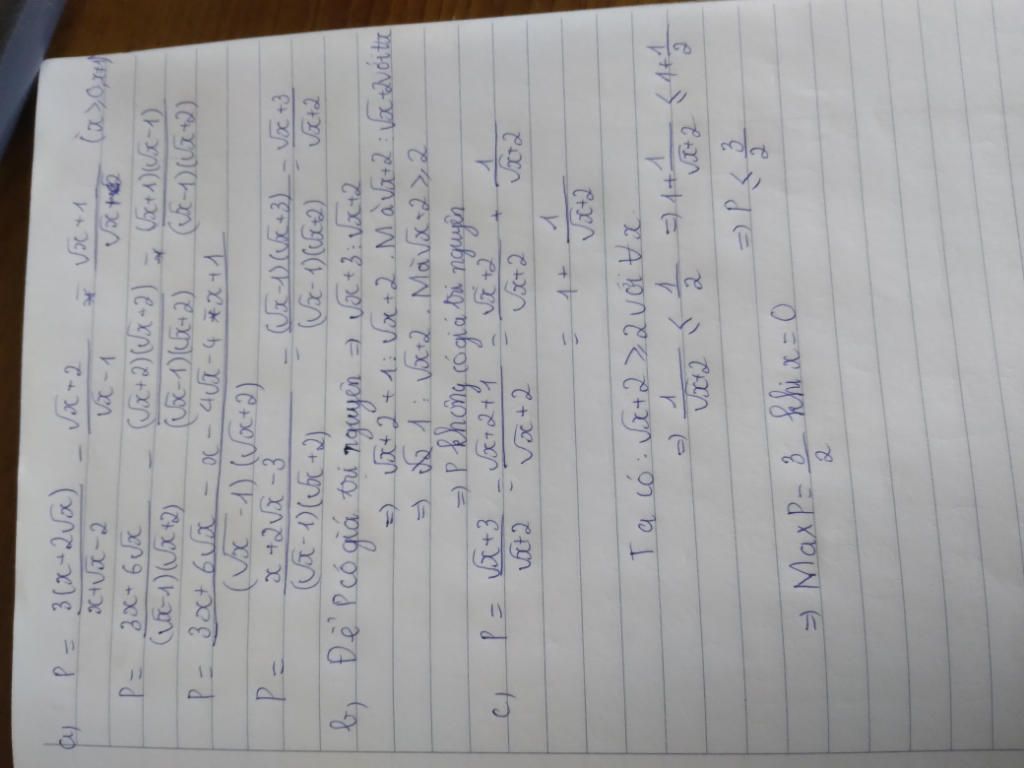 a) P = 3(x+2√x)/(x+√x-2) - (√x+2)/(√x-1) - (√x+1)/(√x+2) (x≥0, x≠1)
P = (3x+6√x)/((√x-1)(√x+2)) - ((√x+2)(√x+2))/((√x-1)(√x+2)) - ((√x+1)(√x-1))/((√x-1)(√x+2))
P = (3x+6√x - x - 4√x - 4 - x + 1)/((√x-1)(√x+2))
P = (x+2√x-3)/((√x-1)(√x+2)) = ((√x-1)(√x+3))/((√x-1)(√x+2)) = (√x+3)/(√x+2)
b, Để P có giá trị nguyên ⇒ √x+3 ⋮ √x+2
⇒ √x+2+1 ⋮ √x+2. Mà √x+2 ⋮ √x+2 với ∀x
⇒ 1 ⋮ √x+2. Mà √x+2 ≥ 2
⇒ P không có giá trị nguyên
c, P = (√x+3)/(√x+2) = (√x+2+1)/(√x+2) = (√x+2)/(√x+2) + 1/(√x+2)
= 1 + 1/(√x+2)
Ta có: √x+2 ≥ 2 với ∀x
⇒ 1/(√x+2) ≤ 1/2 ⇒ 1+1/(√x+2) ≤ 1+1/2
⇒ P ≤ 3/2
⇒ Max P = 3/2 khi x = 0